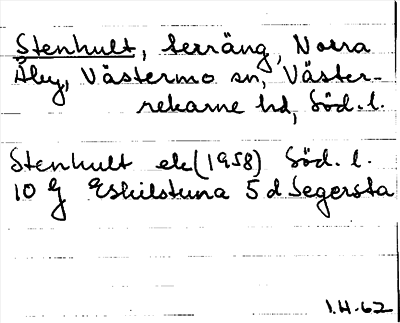 Stenhult, terräng, Norra
Åby, Västermo sn, Väster-
rekarne hd, Söd. l.
Stenhult ek (1958) Söd. l.
10 G Eskilstuna 5 d Segersta
I.H-62